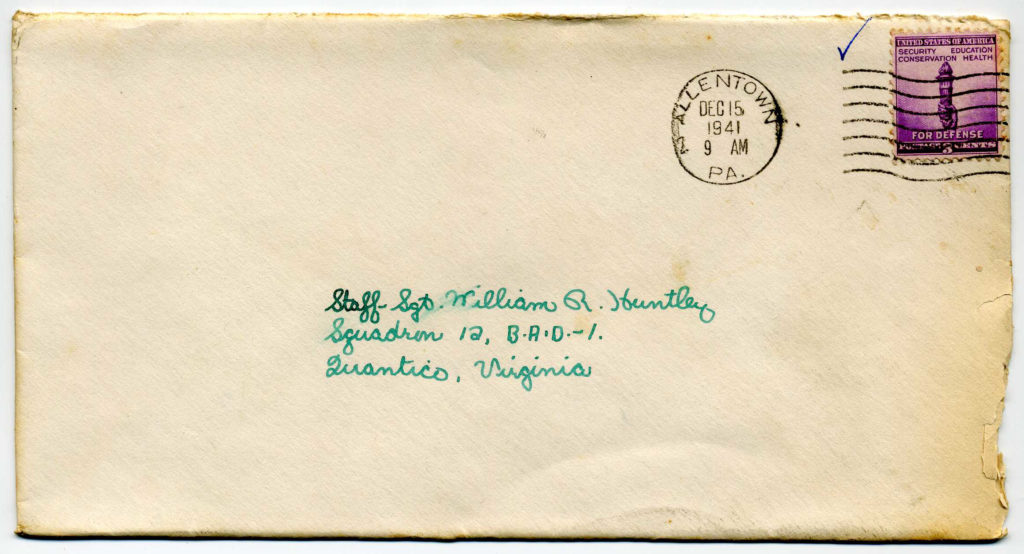 ALLENTOWN
DEC 15
1941
9 AM
PA.
UNITED STATES OF AMERICA
SECURITY EDUCATION
CONSERVATION HEALTH
FOR DEFENSE
POSTAGE 3 CENTS
Staff-Sgt. William R. Huntley
Squadron 12, B.A.D.-1.
Quantico, Virginia